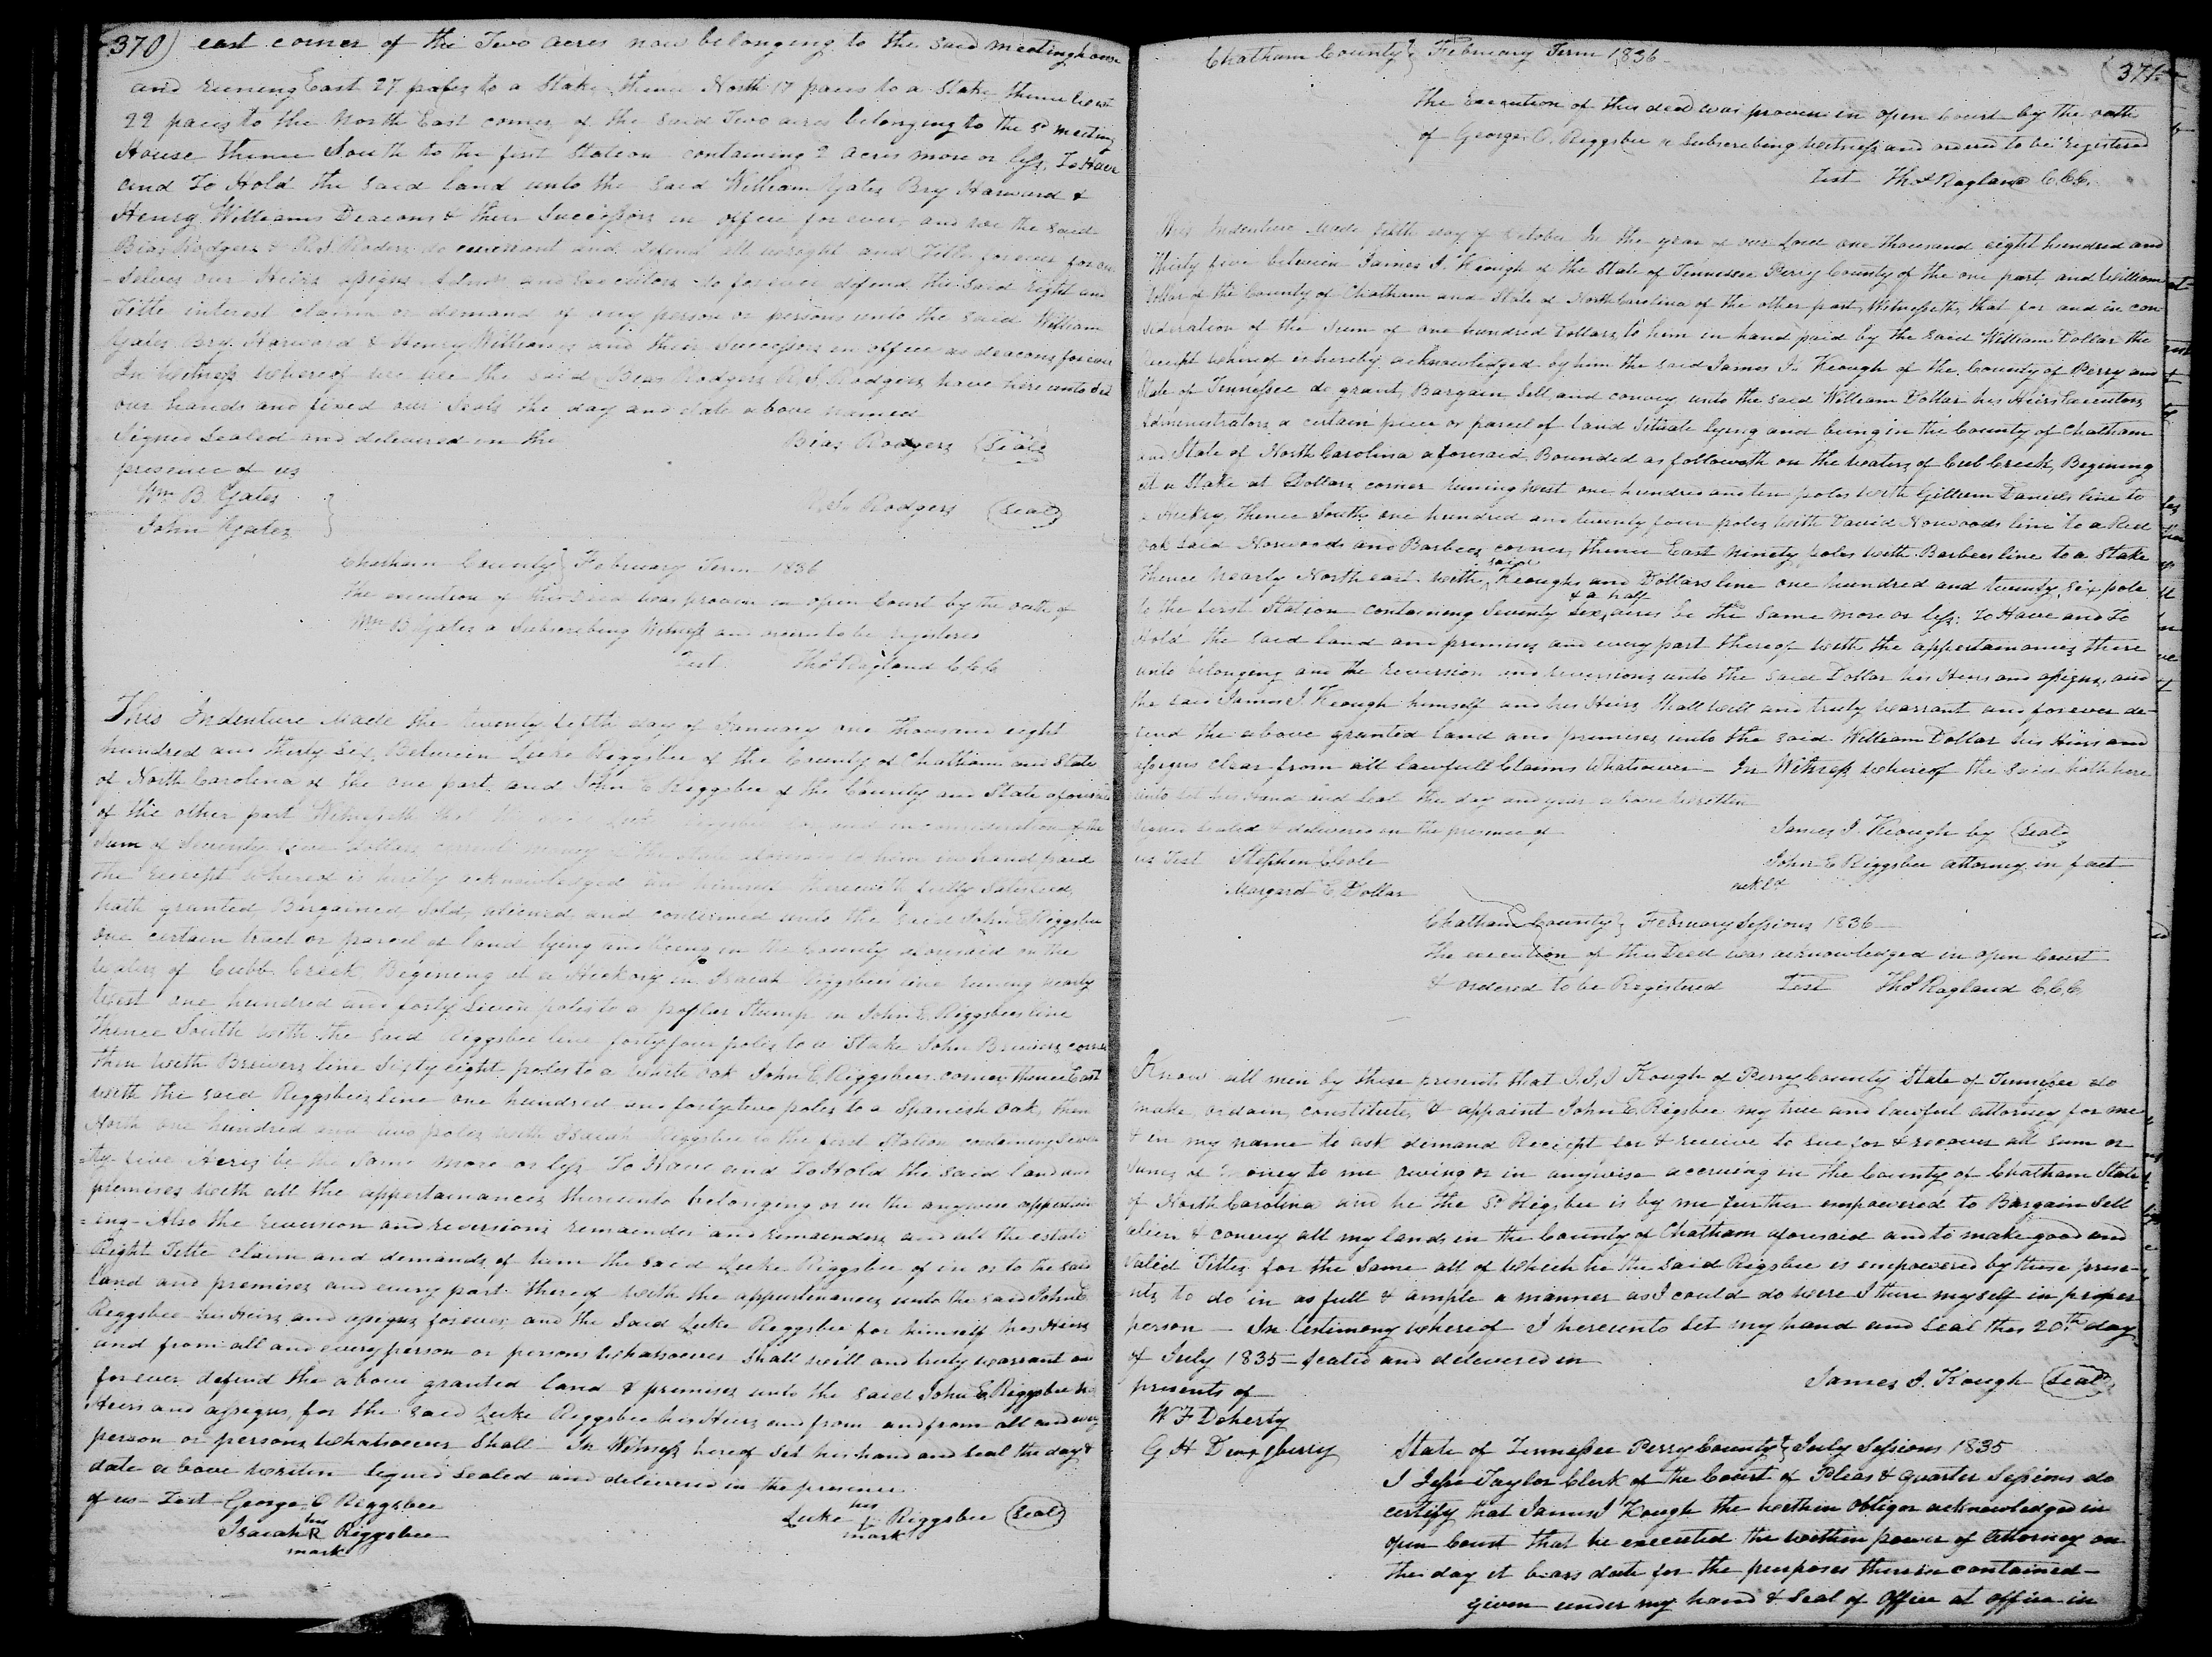 370) east corner of the Two acres now belonging to the said meetinghouse
and runing East 27 paces to a Stake thence North 17 paces to a Stake thence West
22 paces to the North East corner of the said Two acres belonging to the sd meeting
House thence South to the first Station containing 2 acres more or less. To Have
and To Hold the said land unto the said William Yates Bry Harward &
Henry Williams Deacons & their Successors in office for ever, and we the said
Bias Rodgers & R.S. Roders do warrant and defend all wright and Title forever for our
-selves our Heirs assigns Admrs and Executors to forever defend the said right and
Title interest claim or demand of any person or persons unto the said William
Yates Bry. Harward & Henry Williams and their Successors in office as deacons forever
In Witness whereof we we the said Bias Rodgers R.S. Rodgers have hereunto Set
our hands and fixed our Seals the day and date above named
Signed Sealed and delivered in the
presence of us
Bias Rodgers (Seal)
Wm B. Yates
John Yates
R.S. Rodgers (Seal)
Chatham County } February Term 1836
The execution of this deed was proven in open Court by the oath of
Wm B Yates a Subscribing Witness and ordered to be registered
Test Thos Ragland C.C.C.
This Indenture Made the twenty fifth day of January one thousand eight
hundred and thirty six, Between Luke Riggsbee of the County of Chatham and State
of North Carolina of the one part, and John E Riggsbee of the County and State aforesaid
of the other part Witnesseth that the said Luke Riggsbee for and in consideration of the
Sum of Seventy five dollars current money of the State aforesaid to him in hand paid
the receipt whereof is hereby acknowledged and himself therewith fully Satisfied,
hath granted Bargained Sold, aliened and confirmed unto the said John E Riggsbee
one certain tract or parcel of land lying and being in the County aforesaid on the
waters of Cubb Creek, Begining at a Hickory in Isaiah Riggsbees line runing nearly
West one hundred and forty Seven poles to a poplar Stump in John E. Riggsbees line
Thence South with the said Riggsbee line forty four poles to a Stake John Brewers corner
then with Brewers line Sixty eight poles to a White Oak John E, Riggsbees corner thence East
with the said Riggsbees line one hundred and forty two poles to a Spanish Oak, then
North one hundred and two poles with Isaiah Riggsbee to the first Station containing Seven
-ty-five Acres be the Same more or less To Have and To Hold the said land and
premises with all the appertainances thereunto belonging or in the anywise appertain
-ing - Also the reversion and reversions remainder and remainders and all the estate
Right Title claim and demands of him the said Luke Riggsbee of in or to the said
land and premises and every part thereof with the appurtenances unto the said John E
Riggsbee his Heirs and assigns forever and the Said Luke Riggsbee for himself his Heirs
and from all and every person or persons Whatsoever Shall will and truly warrant and
forever defend the above granted land & premises unto the said John E, Riggsbee his
Heirs and assigns, for the said Luke Riggsbee his Heirs and from and from all and every
person or persons Whatsoever Shall - In Witness hereof Set his hand and Seal the day &
date above writen Signed Sealed and delivered in the presence
of us - Test George, O Riggsbee
Luke his mark Riggsbee (Seal)
Isaiah his R mark Riggsbee
Chatham County } February Term 1836 - (371
The Execution of this deed was proven in open Court by the oath
of George O. Riggsbee a Subscribing Witness and ordered to be Registered
Test Thos Ragland C.C.C.
This Indenture Made fifth day of October In the year of our Lord one thousand eight hundred and
thirty five between James I. Keough of the State of Tennessee Perry County of the one part, and William
Dollar of the County of Chatham and State of North Carolina of the other part, Witnesseth, that for and in con
sideration of the Sum of one hundred Dollars, to him in hand paid by the said William Dollar the
receipt whereof is hereby acknowledged by him the said James I. Keough of the County of Perry and
State of Tennessee do grant, Bargain Sell and convey unto the said William Dollar his Heirs Executors
Administrators a certain piece or parcel of land Situate lying and being in the County of Chatham
and State of North Carolina aforesaid, Bounded as followeth on the waters of Cub Creek, Begining
at a Stake at Dollars corner runing West one hundred and ten poles with Gilliam Daniels line to
a Hickry, thence South one hundred and twenty four poles with David Norwoods line to a Red
oak said Norwoods and Barbees corner, thence East ninety poles with Barbees line to a Stake
Thence nearly North east with said Keoughs and Dollars line one hundred and twenty six pole
to the first Station containing Seventy six & a half acres be the Same more or less; To Have and To
Hold the said land and premises and every part thereof with the appertainances, there
unto belonging and the reversion and reversions unto the said Dollar his Heirs and assigns, and
the said James I Keough himself and his Heirs, Shall will and truly warrant and forever de-
fend the above granted land and premises unto the said William Dollar his Heirs and
assigns clear from all lawfull Claims Whatsoever - In Witness whereof the said hath here
unto Set his Hand and Seal the day and year above written
Signed Sealed & delivered in the presence of
James I. Keough by (Seal)
us Test Stephen Cole
John E Riggsbee attorney in fact
Margaret C. Dollar
ackld
Chatham County } February Sessions 1836 -
The execution of this Deed was acknowledged in open Court
& ordered to be Registered Test Thos Ragland C.C.C.
Know all men by these presents that I. J. I Keough of Perry County State of Tennessee do
make, ordain, constitute, & appoint John E, Rigsbee my true and lawful attorney for me
& in my name to ask demand Receipt for & receive to sue for & recover all sum or
sums of money to me owing or in anywise accruing in the County of Chatham State
of North Carolina and he the Sd Rigsbee is by me further empowered to Bargain Sell
alien & convey all my lands in the County of Chatham aforesaid and to make good and
valid Titles for the Same all of Which he the Said Rigsbee is empowered by these prese-
nts to do in as full & ample a manner as I could do were I there myself in proper
person - In testimony whereof I hereunto Set my hand and Seal this 20th day
of July 1835 - sealed and delivered in
presents of
James I. Kough (Seal)
W F Doherty
G H
State of Tennessee Perry County } July Sessions 1835
I Jesse Taylor Clerk of the Court of Pleas & quarter Sessions do
certify that James I Kough the within obligor acknowledged in
open Court that he executed the within power of attorney on
the day it bears date for the purposes therein contained -
given under my hand & Seal of Office at office in